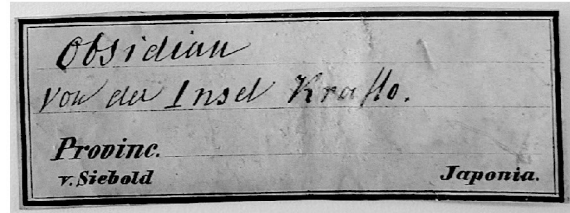 Obsidian
von der Insel Krafto.
Provinc.
v. Siebold Japonia.